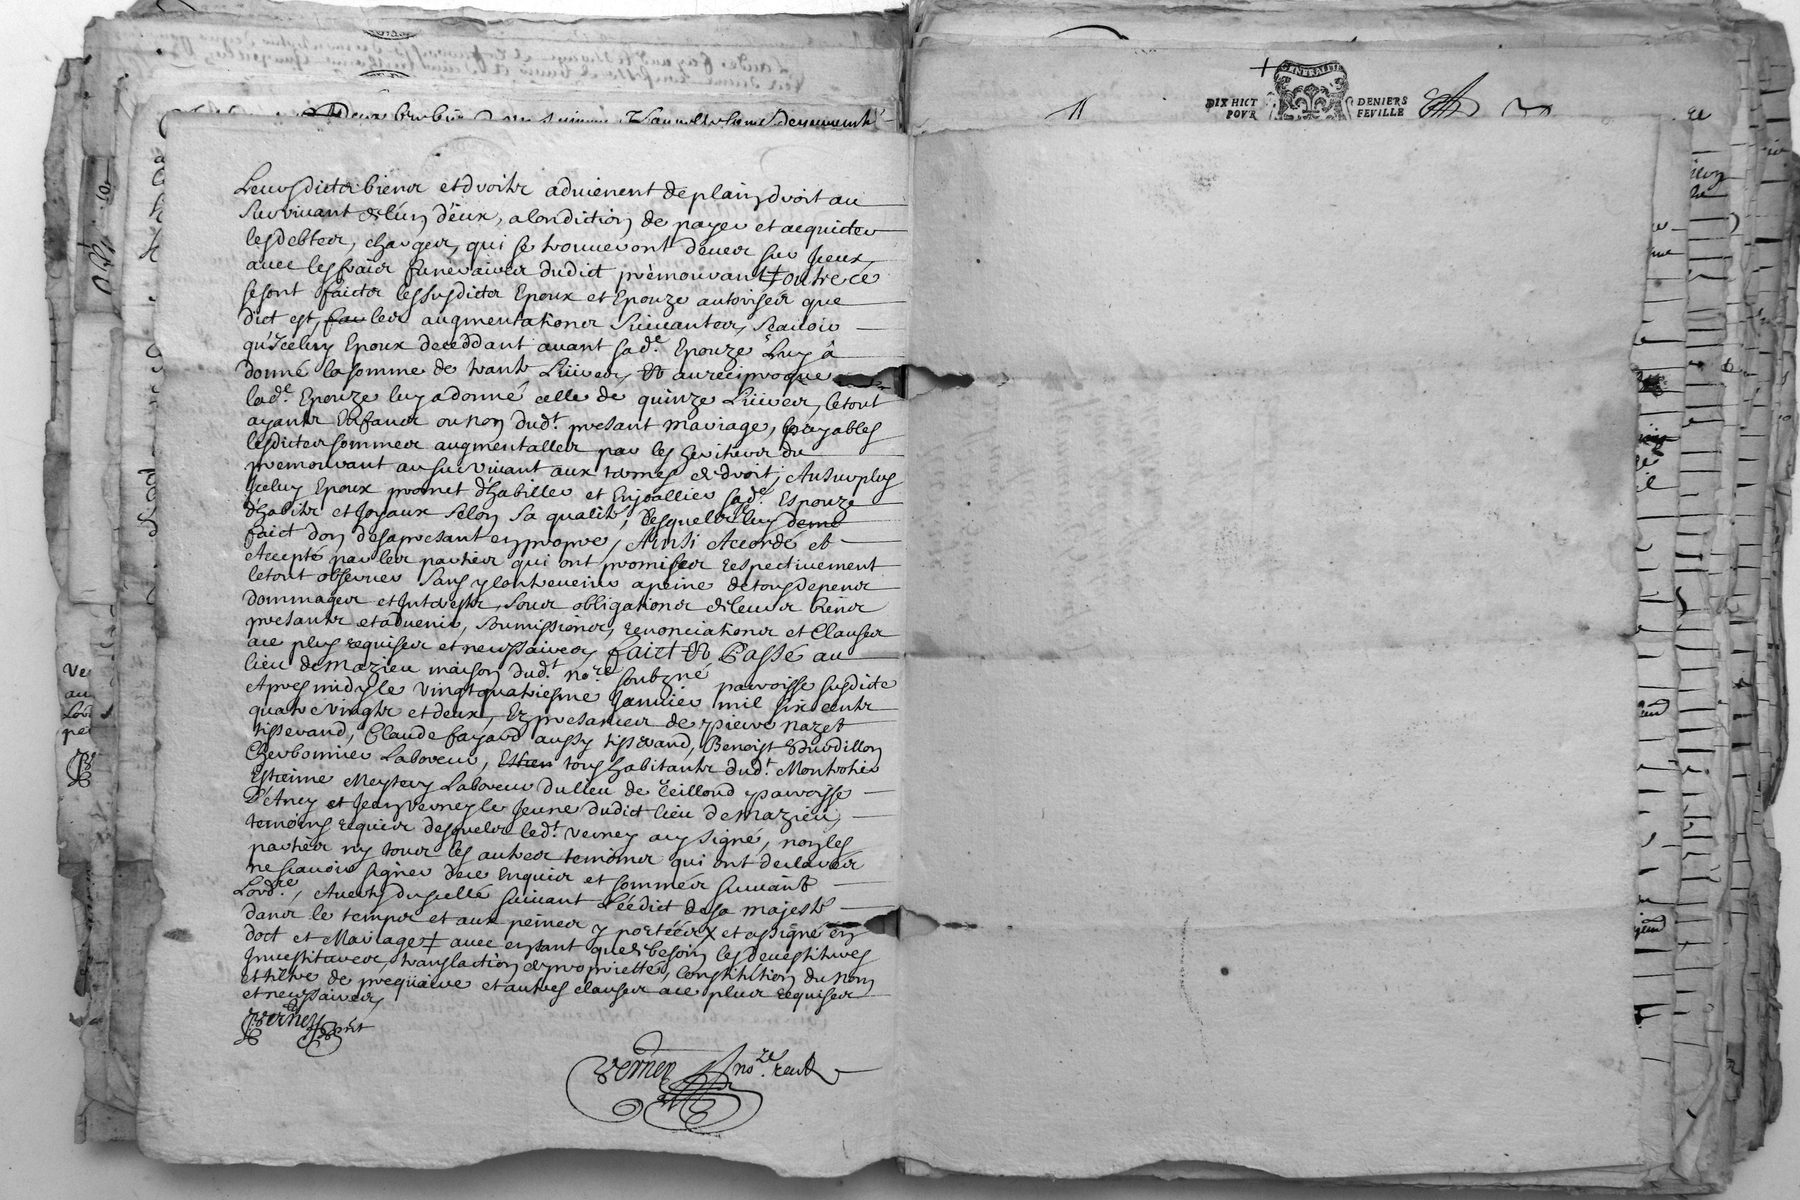 DIX HICT DENIERS
POVR FEVILLE
GENERALITE
Leursdicts biens et droits advienent de plain droit au
survivant de l'un d'eux, a condiction de payer et acquicter
les debtes, charges, qui se trouveront deues sur Iceux,
avec les fraix funeraires dudict premourant ‡ outre ce
se sont faictes lessusdicts Epoux et Epouze autorisés que
dict est, les augmentations suivantes, scavoir
qu'Iceluy Epoux deceddant avant sad.e Epouze luy a
donné la somme de trante Livres, Et au reciproque
lad.e Epouze luy a donné celle de quinze Livres, le tout
ayants Enfans ou non dud.t presant mariage, payables
lesdictes sommes augmentalles par les heritiers du
premourant au survivant aux termes de droit; Au surplus
Iceluy Epoux promet d'habiller et Enjoallier sad.e Espouze
d'habits et Joyaux selon sa qualité, lesquels luy
faict don desapresant en propre, Ainsi Accordé et
Accepté par les parties qui ont promises respectivement
le tout observer sans y contrevenir a peine de tous depens
dommages et Interests, sous obligations de leurs biens
presants et advenir, soumissions, renonciations et Clauses
ace plus requises et necessaires, faict Et Passé au
lieu de Mazieu maison dud.t no.re soubzné parroisse susdicte
Apres midy le vingt quatriesme Janvier mil six cents
quatre vingts et deux, En presances de pierre nazet
tisserand, Claude fayard aussy tisserand, Benoist Burdillon
Cherbonnier Laboreur, Estien tous habitants dud.t Montrotier
Estienne Meytery Laboreur du lieu de Teillond parroisse
D'Ancy et Jean Verney le Jeune dudict lieu de Mazieu,
temoins requis desquels led.t Verney a signé, non les
parties ny tous les autres temoins qui ont declarés
ne scavoir signer de ce Enquis et sommés suivant
Lord.re, Avertis du scellé suivant L'eédict de sa majesté
dans le temps et aux peines y portées X et assigné en
doct et Mariage ‡ avec en tant que de besoin les devestitures
Investitures, translaction de proprietté, constitution du nom
et tiltre de prequaire et autres clauses ace plus requises
et necessaires,
Verney
Verney no.re